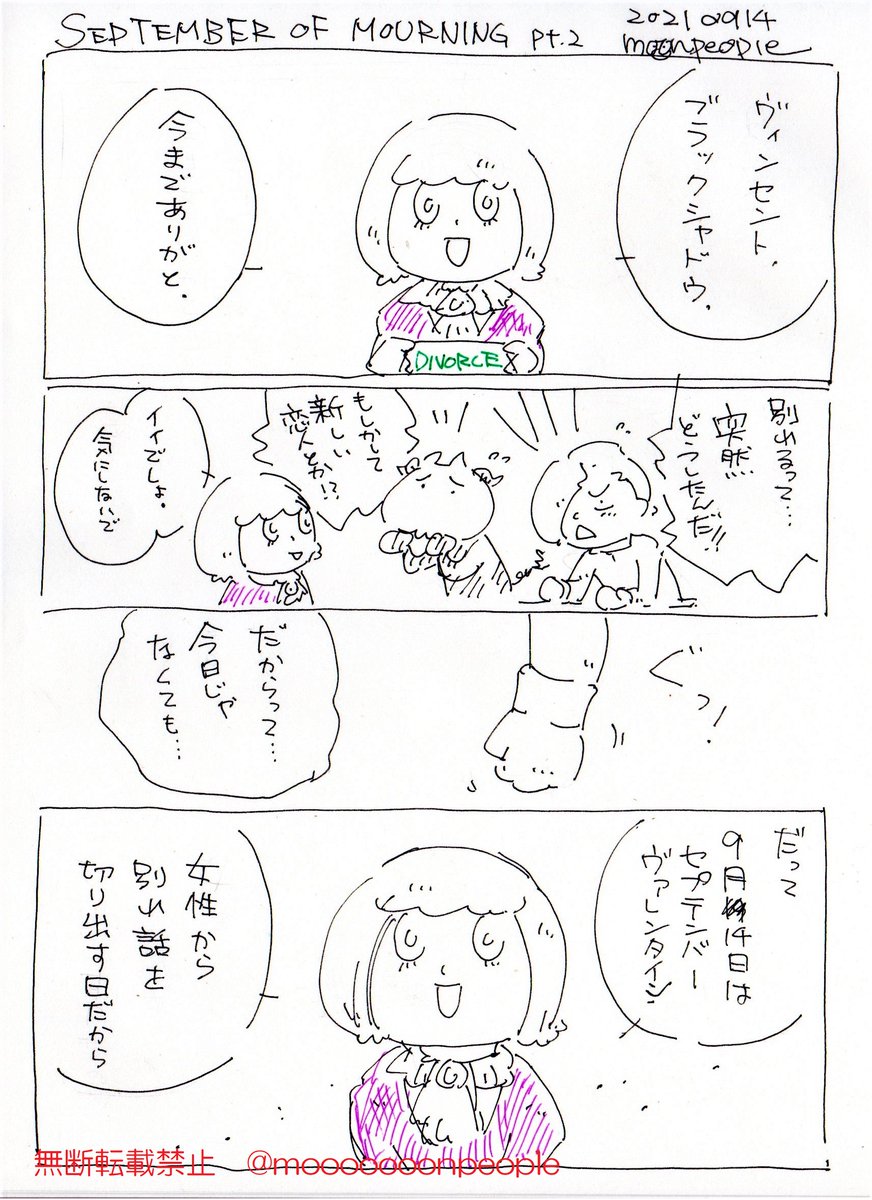 SEPTEMBER OF MOURNING pt.2
20210914
moonpeople
ヴィンセント、
ブラックシャドウ、
今までありがと。
DIVORCE
別れるって…
突然
どうしたんだ!!
もしかして
新しい
恋人とか!?
イイでしょ。
気にしないで
ぐっ!
だからって…
今日じゃ
なくても…
だって
9月14日は
セプテンバー
ヴァレンタイン
女性から
別れ話を
切り出す日だから
1
無断転載禁止 @mooooooonpeople